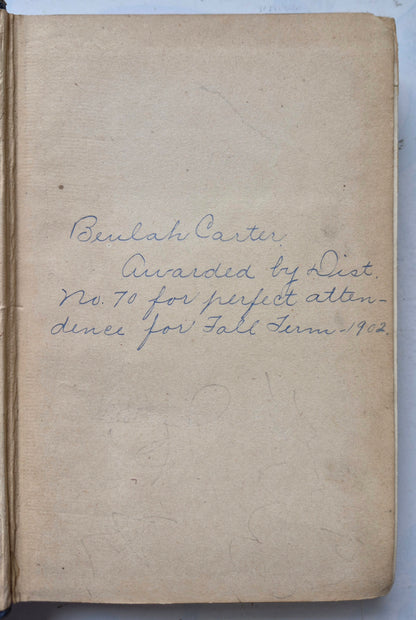 Beulah Carter
Awarded by Dist.
No. 70 for perfect atten-
dence for Fall Term-1902